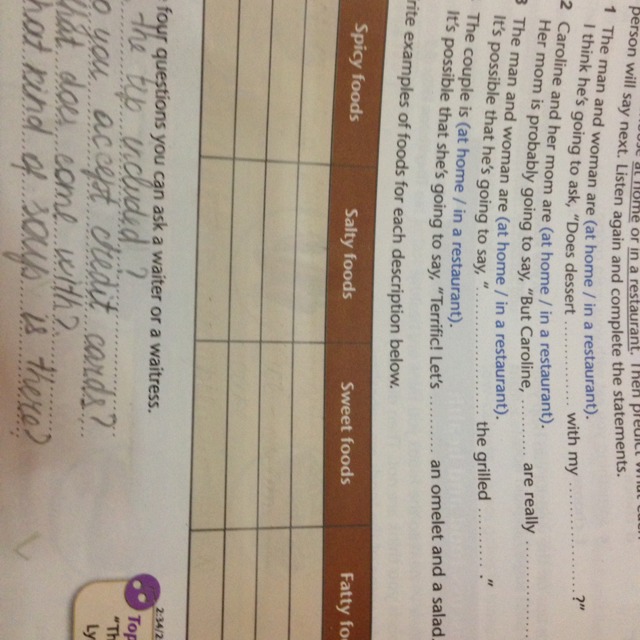 person will say next. Listen again and complete the statements.
1 The man and woman are (at home / in a restaurant).
I think he's going to ask, "Does dessert .......... with my ..........?"
2 Caroline and her mom are (at home / in a restaurant).
Her mom is probably going to say, "But Caroline, .......... are really ..........
3 The man and woman are (at home / in a restaurant).
It's possible that he's going to say, ".......... the grilled .......... ."
The couple is (at home / in a restaurant).
It's possible that she's going to say, "Terrific! Let's .......... an omelet and a salad.
rite examples of foods for each description below.
Spicy foods Salty foods Sweet foods Fatty fo
four questions you can ask a waiter or a waitress.
the tip included?
o you accept credit cards?
does come with?
kind of soups is there?
2:34/2
Top
"Th
Ly